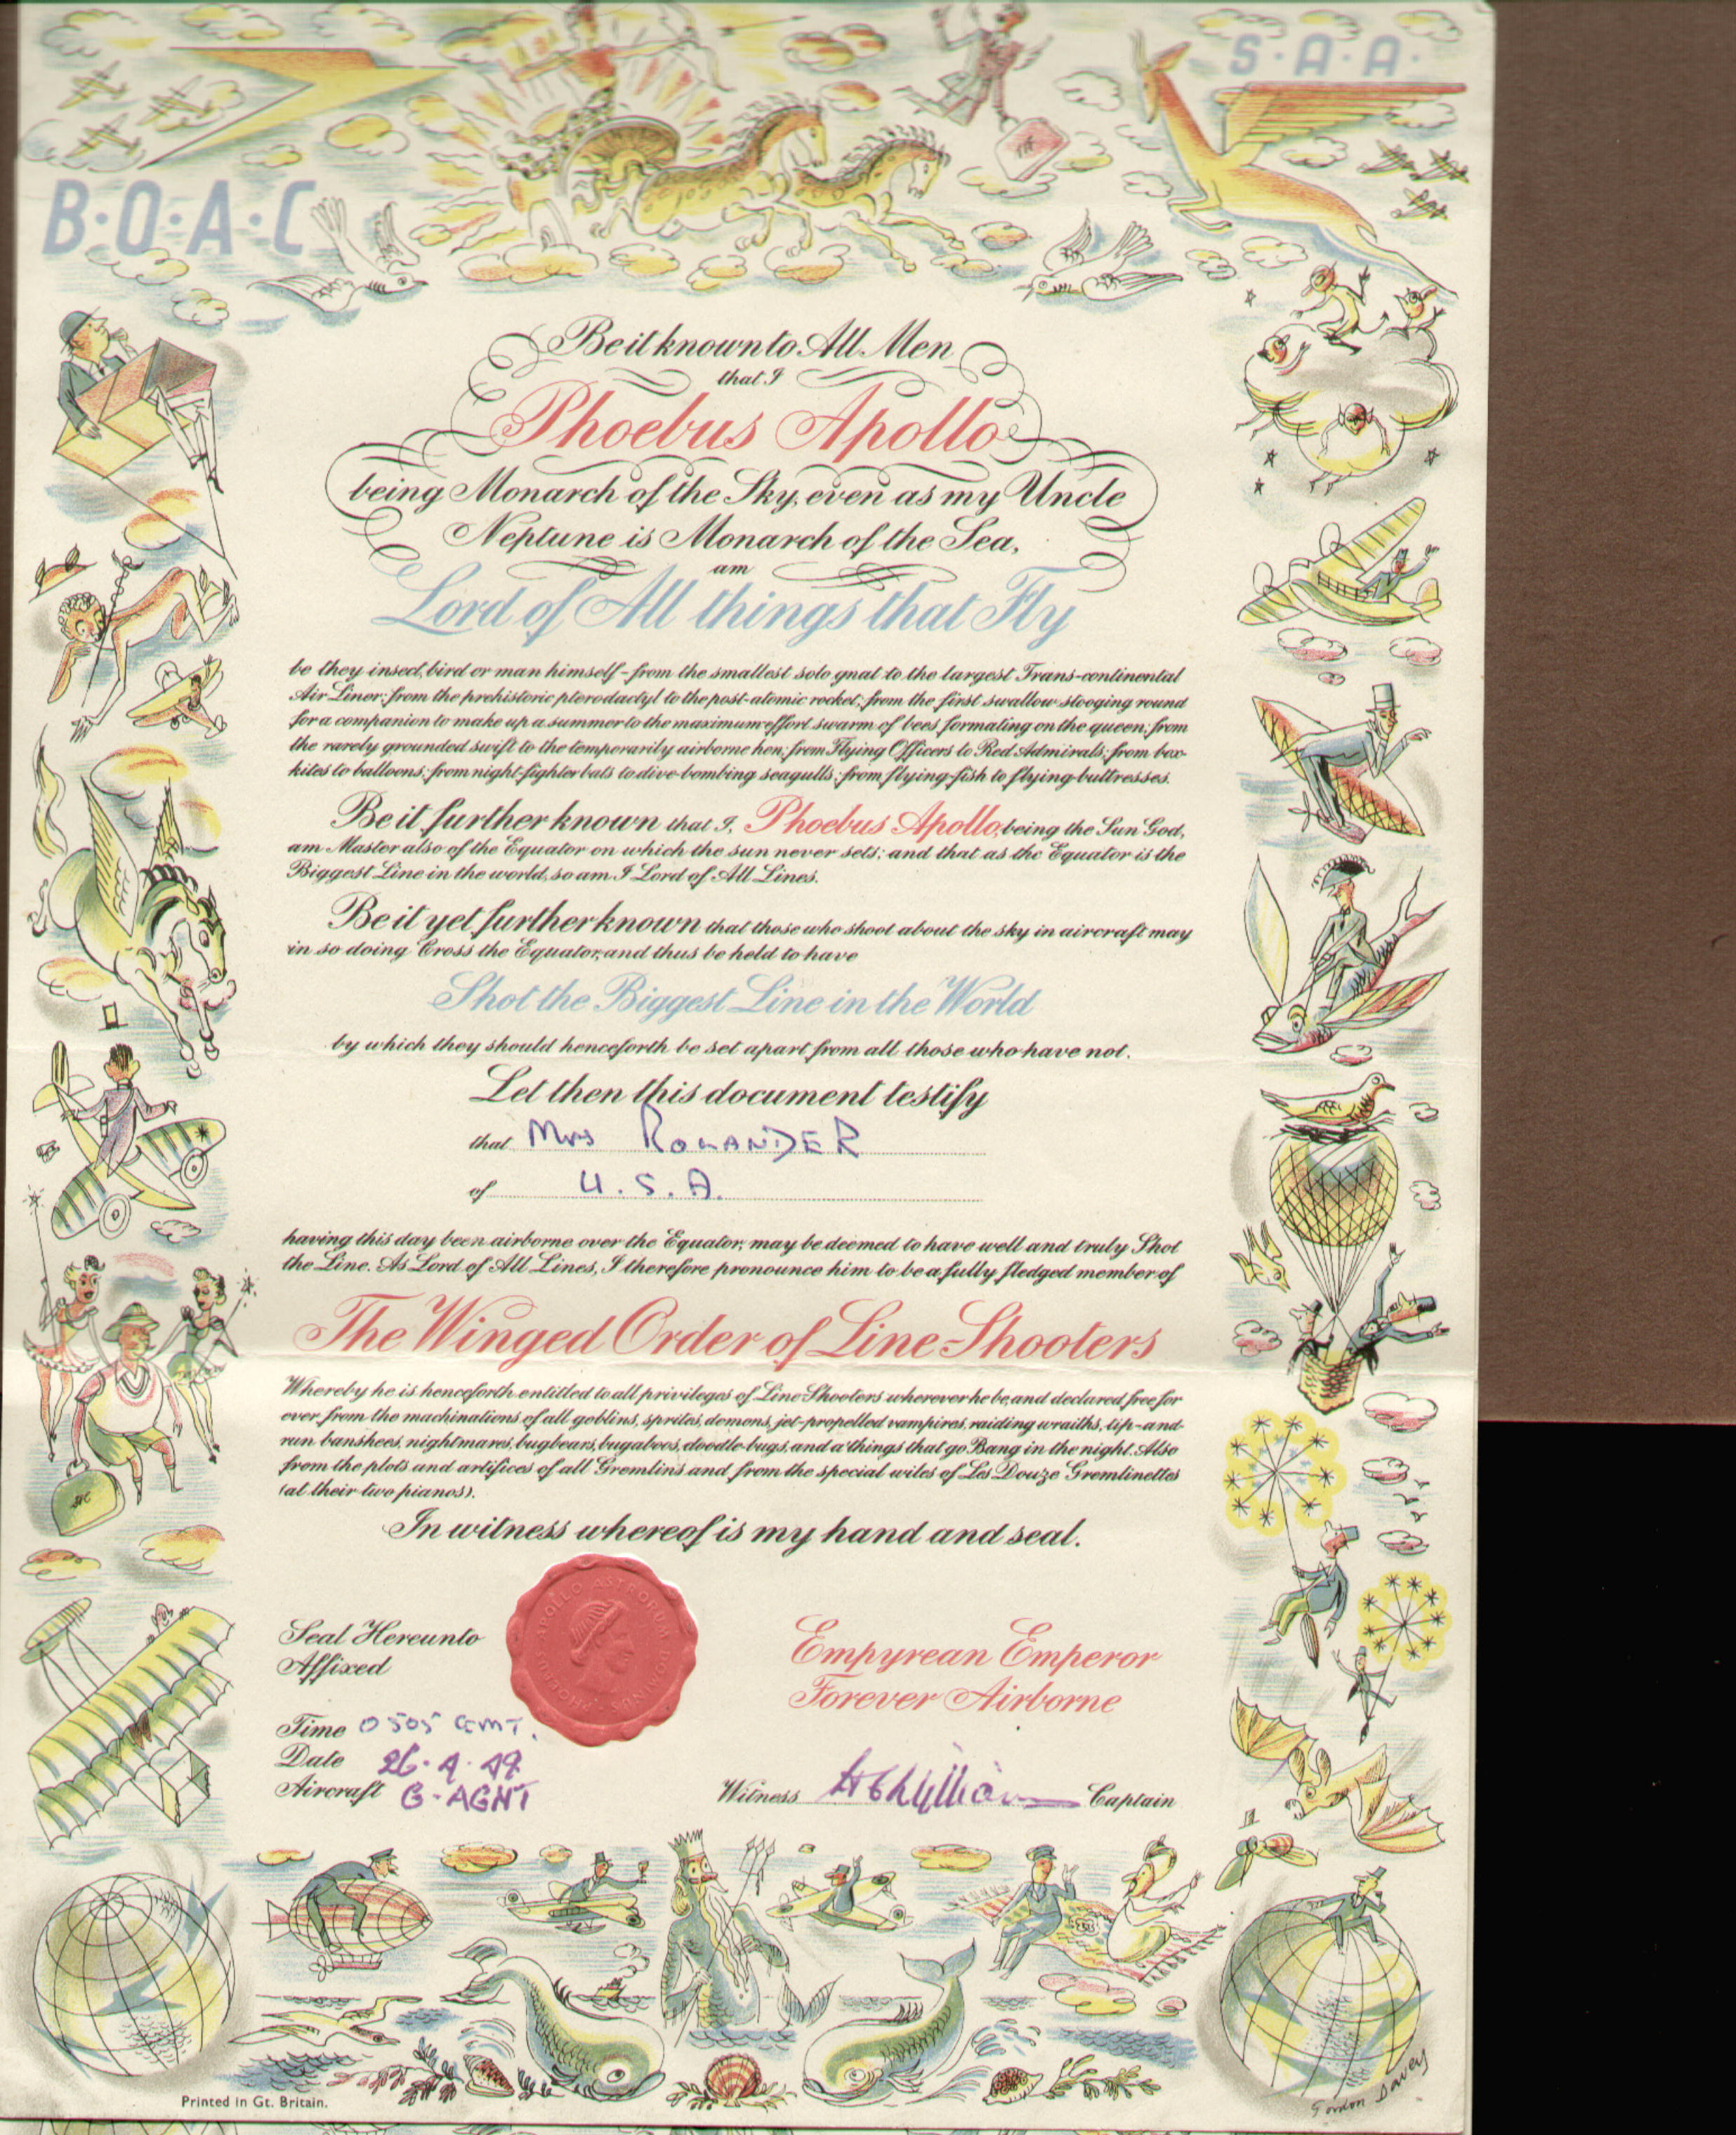 S·A·A·
B·O·A·C
Be it known to All Men
that I
Phoebus Apollo
being Monarch of the Sky, even as my Uncle
Neptune is Monarch of the Sea,
am
Lord of All things that Fly
be they insect, bird or man himself - from the smallest solo gnat to the largest Trans-continental
Air Liner; from the prehistoric pterodactyl to the post-atomic rocket; from the first swallow stooging round
for a companion to make up a summer to the maximum effort swarm of bees formating on the queen; from
the rarely grounded swift to the temporarily airborne hen; from Flying Officers to Red Admirals; from box-
kites to balloons; from night-fighter bats to dive-bombing seagulls; from flying-fish to flying-buttresses.
Be it further known that I, Phoebus Apollo, being the Sun God,
am Master also of the Equator on which the sun never sets; and that as the Equator is the
Biggest Line in the world, so am I Lord of All Lines.
Be it yet further known that those who shoot about the sky in aircraft may
in so doing Cross the Equator, and thus be held to have
Shot the Biggest Line in the World
by which they should henceforth be set apart from all those who have not.
Let then this document testify
that Mrs ROLANDER
of U.S.A.
having this day been airborne over the Equator, may be deemed to have well and truly Shot
the Line. As Lord of All Lines, I therefore pronounce him to be a fully fledged member of
The Winged Order of Line-Shooters
Whereby he is henceforth entitled to all privileges of Line-Shooters wherever he be, and declared free for
ever from the machinations of all goblins, sprites, demons, jet-propelled vampires, raiding wraiths, tip-and-
run banshees, nightmares, bugbears, bugaboos, doodle-bugs, and a' things that go Bang in the night. Also
from the plots and artifices of all Gremlins and from the special wiles of Les Douze Gremlinettes
(at their two pianos).
In witness whereof is my hand and seal.
PHOEBUS APOLLO ASTRORUM DOMINUS
Seal Hereunto
Affixed
Empyrean Emperor
Forever Airborne
Time 0505 GMT.
Date 26.4.49
Aircraft G-AGNT
Witness Captain
Gordon Davey
Printed in Gt. Britain.